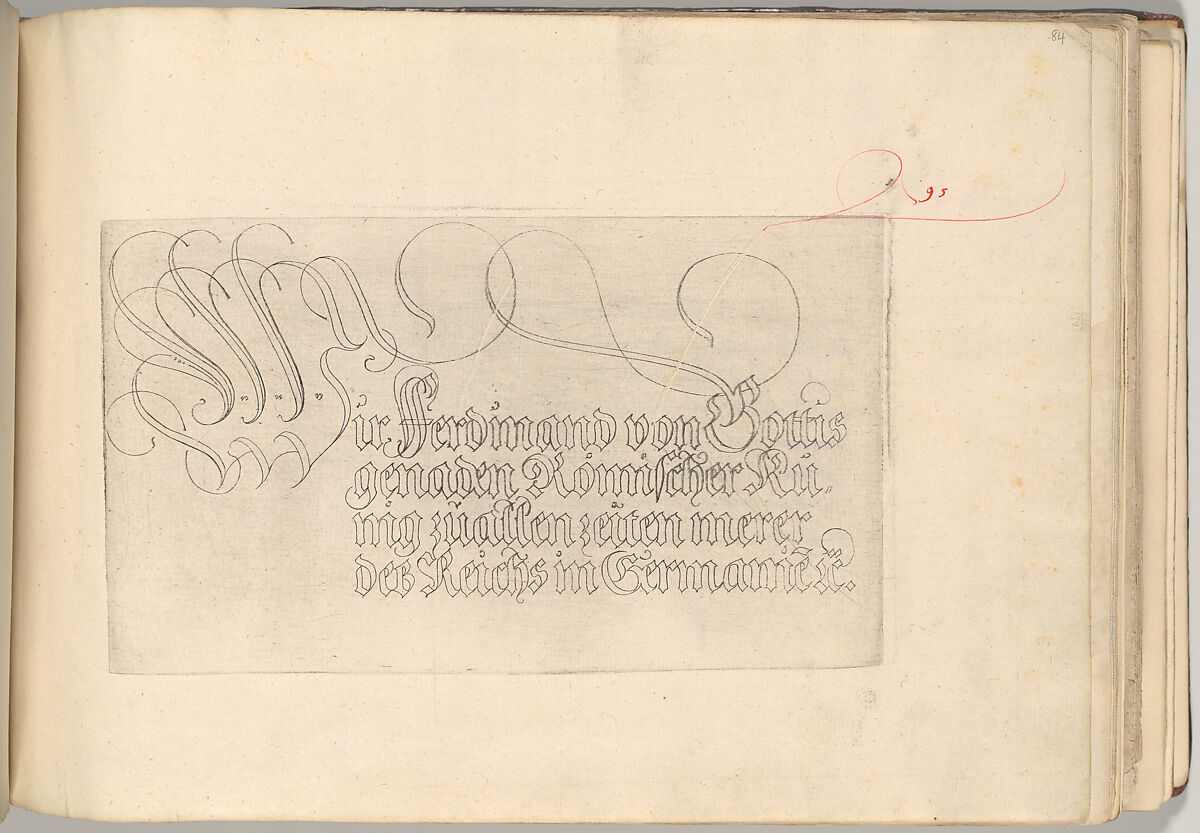 84
95
Wir Ferdinand von Gottis
genaden Römischer Kü-
nig zu allen zeiten merer
des Reichs in Germaniē ꝛc.